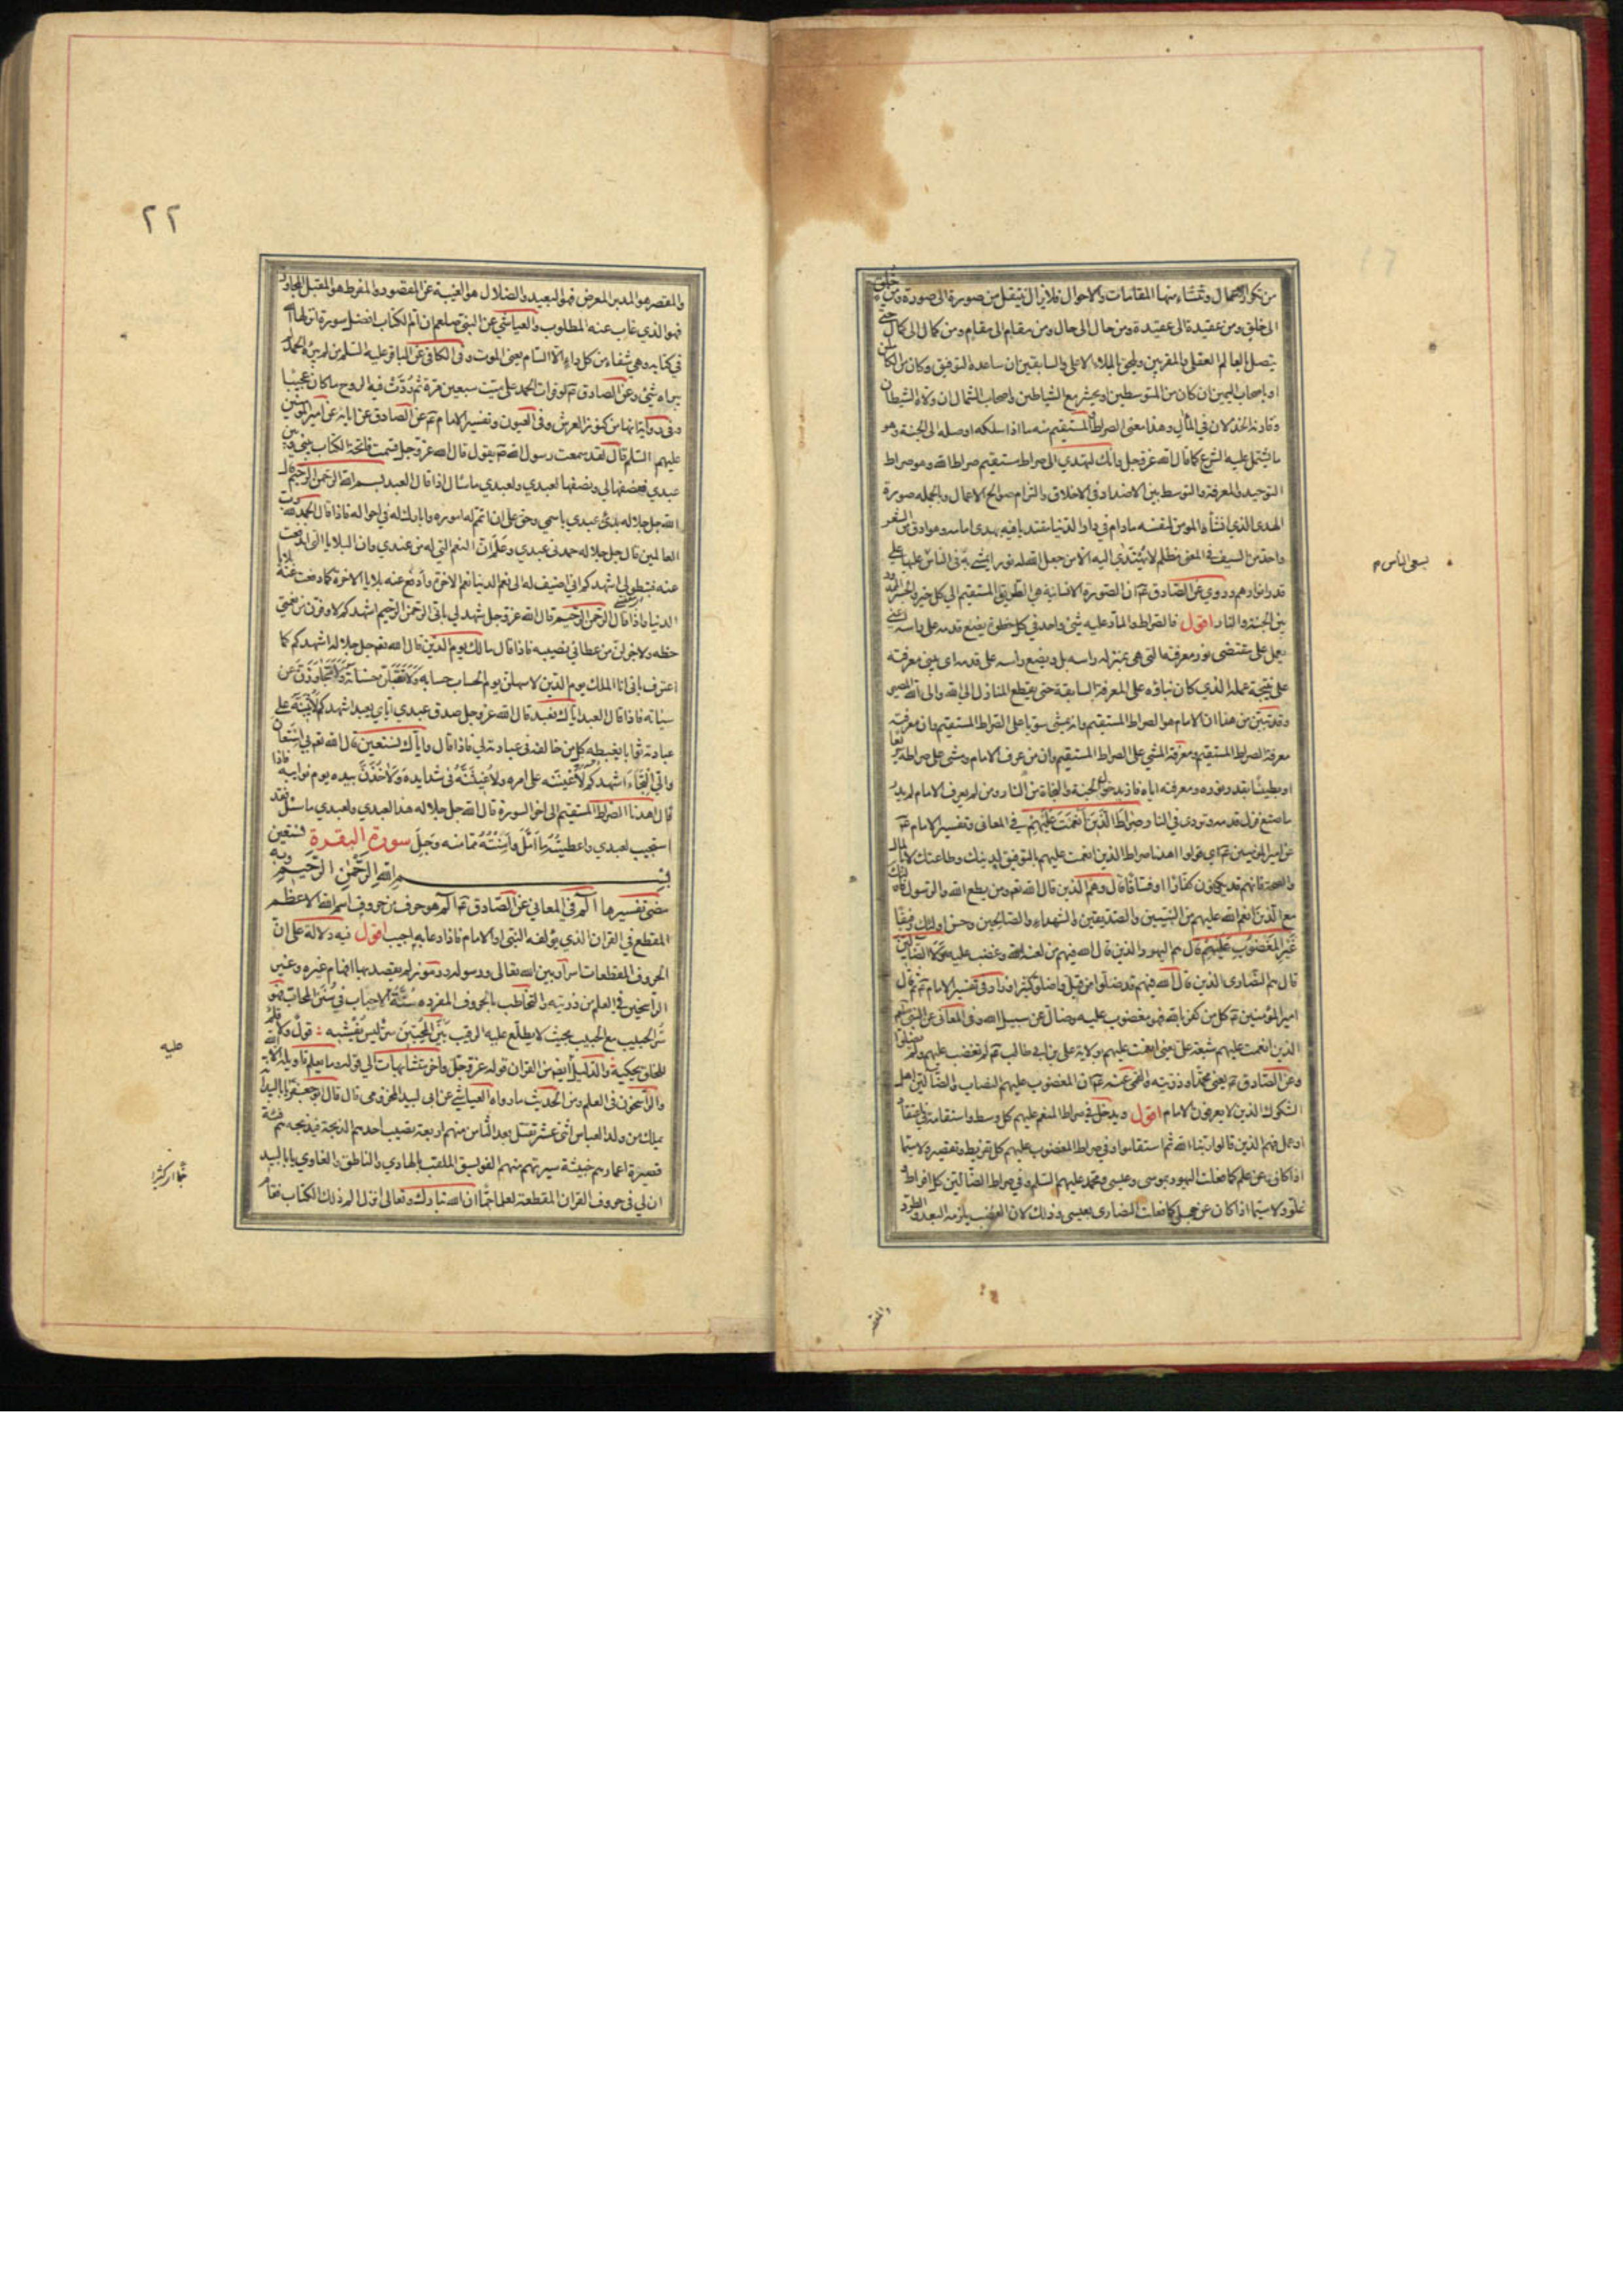 من تكرر الاعمال وتنشاء منها المقامات والاحوال فلا يزال ينتقل من صورة الى صورة ومن خلق
الى خلق ومن عقيدة الى عقيدة ومن حال الى حال ومن مقام الى مقام ومن كمال الى كمال حتى
يتصل بالعالم العقلي والمقربين ويلحق بالملاء الاعلى والسابقين ان ساعده التوفيق وكان من الكاملين
او باصحاب اليمين ان كان من المتوسطين او يحشر مع الشياطين واصحاب الشمال ان ولاه الشيطان
وقارنه الخذلان في المآل وهذا معنى الصراط المستقيم منه ما اذا سلكه اوصله الى الجنة وهو
ما يشتمل عليه الشرع كما قال الله عز وجل وانك لتهدي الى صراط مستقيم صراط الله وهو صراط
التوحيد والمعرفة والتوسط بين الاضداد في الاخلاق والتزام صوالح الاعمال وبالجملة صورة
الهدى الذي انشأه المؤمن لنفسه مادام في دار الدنيا مقتديا فيه بهدى امامه وهو ادق من الشعر
واحد من السيف في المعنى مظلم لا يهتدي اليه الا من جعل الله له نورا يمشي به في الناس
يسعى الناس م
عليها على
قدر انوارهم وروي عن الصادق ع ان الصورة الانسانية هي الطريق المستقيم الى كل خير والجسر الممدود
بين الجنة والنار اقول فالصراط والمار عليه شيء واحد في كل خطوة يضع قدمه على راسه اعني
يعمل على مقتضى نور معرفته التي هي بمنزلة راسه بل ويضع راسه على قدمه اي يبني معرفته
على نتيجة عمله الذي كان بناؤه على المعرفة السابقة حتى يقطع المنازل الى الله والى الله المصير
وقد تبين من هذا ان الامام هو الصراط المستقيم وانه يمشي سويا على الصراط المستقيم وان معرفته
معرفة الصراط المستقيم ومعرفة المشي على الصراط المستقيم وان من عرف الامام ومشى على صراطه سريعا
او بطيئا بقدر نوره ومعرفته اياه فاز بدخول الجنة والنجاة من النار ومن لم يعرف الامام لم يدر
ما صنع فزل قدمه وتردى في النار صراط الذين انعمت عليهم في المعاني وتفسير الامام ع
عن امير المؤمنين ع اي قولوا اهدنا صراط الذين انعمت عليهم بالتوفيق لدينك وطاعتك لا بالمال
والصحة فانهم قد يكونون كفارا او فساقا قال وهم الذين قال الله تع ومن يطع الله والرسول فاولئك
مع الذين انعم الله عليهم من النبيين والصديقين والشهداء والصالحين وحسن اولئك رفيقا
غير المغضوب عليهم قال هم اليهود الذين قال الله فيهم من لعنه الله وغضب عليه ولا الضالين
قال هم النصارى الذين قال الله فيهم قد ضلوا من قبل واضلوا كثيرا وزاد في تفسير الامام ع ثم قال
امير المؤمنين ع كل من كفر بالله فهو مغضوب عليه وضال عن سبيل الله وفي المعاني عن النبي صلعم
الذين انعمت عليهم شيعة علي يعني انعمت عليهم بولاية علي بن ابي طالب ع لم تغضب عليهم ولم يضلوا
وعن الصادق ع يعني محمدا وذريته والقمي عنه ع ان المغضوب عليهم النصاب والضالين اهل
الشكوك الذين لا يعرفون الامام اقول ويدخل في صراط المنعم عليهم كل وسط واستقامة في اعتقاد
او عمل فهم الذين قالوا ربنا الله ثم استقاموا وفي صراط المغضوب عليهم كل تفريط وتقصير ولا سيما
اذا كان عن علم كما فعلت اليهود بموسى وعيسى ومحمد عليهم السلم وفي صراط الضالين كل افراط و
غلو ولا سيما اذا كان عن جهل كما فعلت النصارى بعيسى وذلك لان الغضب يلزمه البعد والطرد
والمقصر
٢٢
والمقصر هو المدبر المعرض فهو البعيد والضلال هو الغيبة عن المقصود والمفرط هو المقبل المجاوز
فهو الذي غاب عنه المطلوب والعياشي عن النبي صلعم ان ام الكتاب افضل سورة انزلها الله
في كتابه وهي شفاء من كل داء الا السام يعني الموت وفي الكافي عن الباقر عليه السلم من لم يبرئه الحمد لم
يبرأه شيء وعن الصادق ع لو قرات الحمد على ميت سبعين مرة ثم ردت فيه الروح ما كان عجيبا
وفي رواية انها من كنوز العرش وفي العيون وتفسير الامام ع عن الصادق عن ابائه عن امير المؤمنين
عليهم السلم قال لقد سمعت رسول الله ص يقول قال الله عز وجل قسمت فاتحة الكتاب بيني وبين
عبدي فنصفها لي ونصفها لعبدي ولعبدي ما سال اذا قال العبد بسم الله الرحمن الرحيم قال
الله جل جلاله بدئ عبدي باسمي وحق علي ان اتمم له اموره وابارك له في احواله فاذا قال الحمد لله رب
العالمين قال جل جلاله حمدني عبدي وعلم ان النعم التي له من عندي وان البلايا التي اندفعت
عنه فبتطولي اشهدكم اني اضيف له الى نعم الدنيا نعم الاخرة وادفع عنه بلايا الاخرة كما دفعت عنه بلايا
الدنيا فاذا قال الرحمن الرحيم قال الله عز وجل شهد لي باني الرحمن الرحيم اشهدكم لاوفرن من نعمتي
حظه ولاجزلن من عطائي نصيبه فاذا قال مالك يوم الدين قال الله تع جل جلاله اشهدكم كما
اعترف باني انا الملك يوم الدين لاسهلن يوم الحساب حسابه ولاتقبلن حسناته ولاتجاوزن عن
سيئاته فاذا قال العبد اياك نعبد قال الله عز وجل صدق عبدي اياي يعبد اشهدكم لاثيبنه على
عبادته ثوابا يغبطه كل من خالفه في عبادته لي فاذا قال واياك نستعين قال الله تع بي استعان
والي التجاء اشهدكم لاعيننه على امره ولاغيثنه في شدايده ولاخذن بيده يوم نوايبه فاذا
قال اهدنا الصراط المستقيم الى اخر السورة قال الله جل جلاله هذا لعبدي ولعبدي ما سئل فقد
استجبت لعبدي واعطيته ما امل وامنته مما منه وجل سورة البقرة
بسم الله الرحمن الرحيم وبه نستعين
مضى تفسيرها الم في المعاني عن الصادق ع الم هو حرف من حروف اسم الله الاعظم
المقطع في القران الذي يؤلفه النبي او الامام فاذا دعا به اجيب اقول فيه دلالة على ان
الحروف المقطعات اسرار بين الله تعالى ورسوله ورموز لم يقصد بها افهام غيره وغير
الراسخين في العلم من ذريته والتخاطب بالحروف المفردة سنة الاحباب في سنن المحاب فهو
سر الحبيب مع الحبيب بحيث لا يطلع عليه الرقيب بين المحبين سر ليس يفشيه : قول ولا قلم
للخلق يحكيه والدليل ايضا من القران قوله عز وجل واخر متشابهات الى قوله وما يعلم تاويله الا الله
عليه
والراسخون في العلم ومن الحديث ما رواه العياشي عن ابي لبيد المخزومي قال قال ابو جعفر يا با لبيد انه
يملك من ولد العباس اثنى عشر تقتل بعد الثامن منهم اربعة تصيب احدهم الذبحة فيذبحه هم فئة
قصيرة اعمارهم خبيثة سيرتهم منهم الفويسق الملقب بالهادي والناطق والغاوي يا با لبيد
ان لي في حروف القران المقطعة لعلما جما ان الله تبارك وتعالى انزل الم ذلك الكتاب فقام